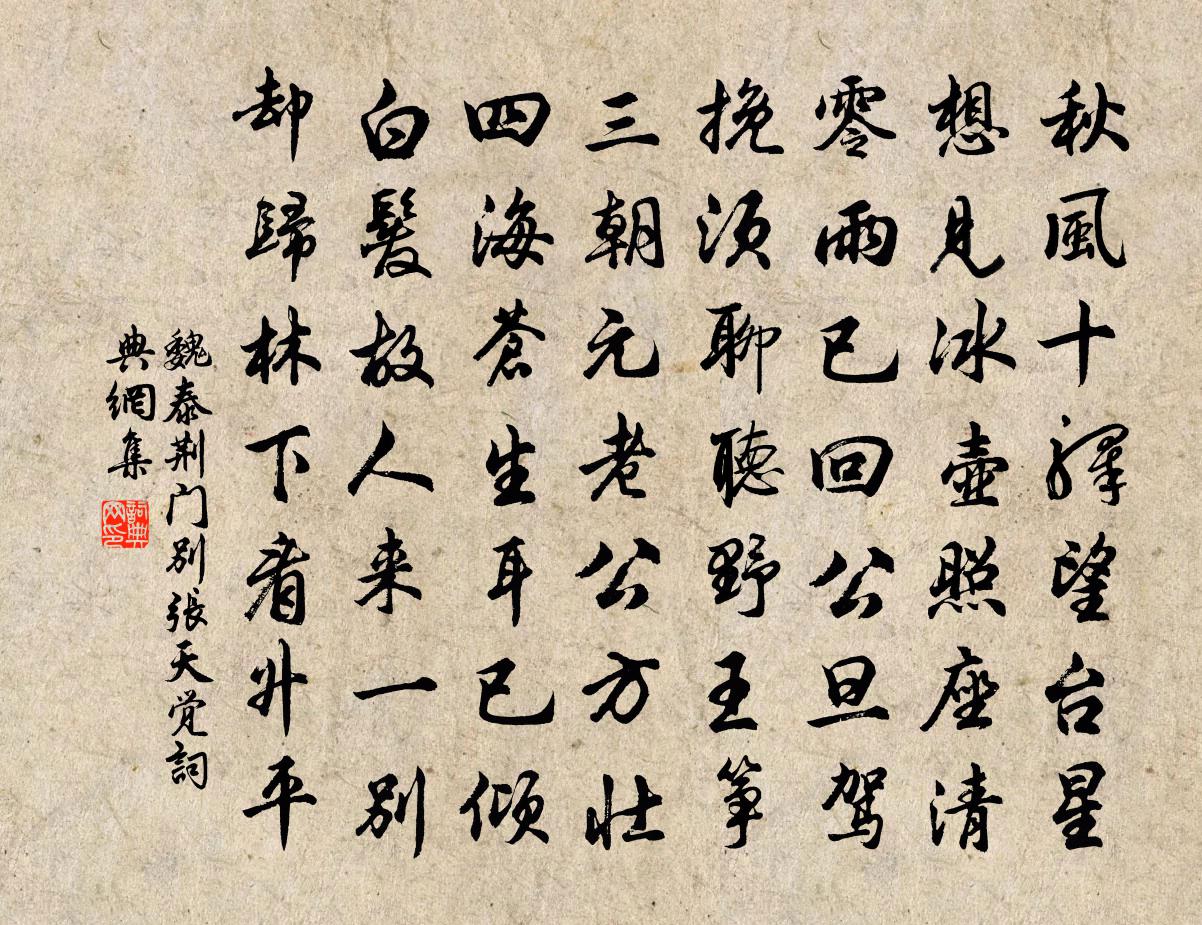 秋風十驛望台星
想見冰壺照座清
零雨已回公旦駕
挽須聊聽野王箏
三朝元老公方壮
四海蒼生耳已傾
白髮故人来一別
却歸林下看升平
魏泰荆门別張天覚詞
典網集
詞典
网印